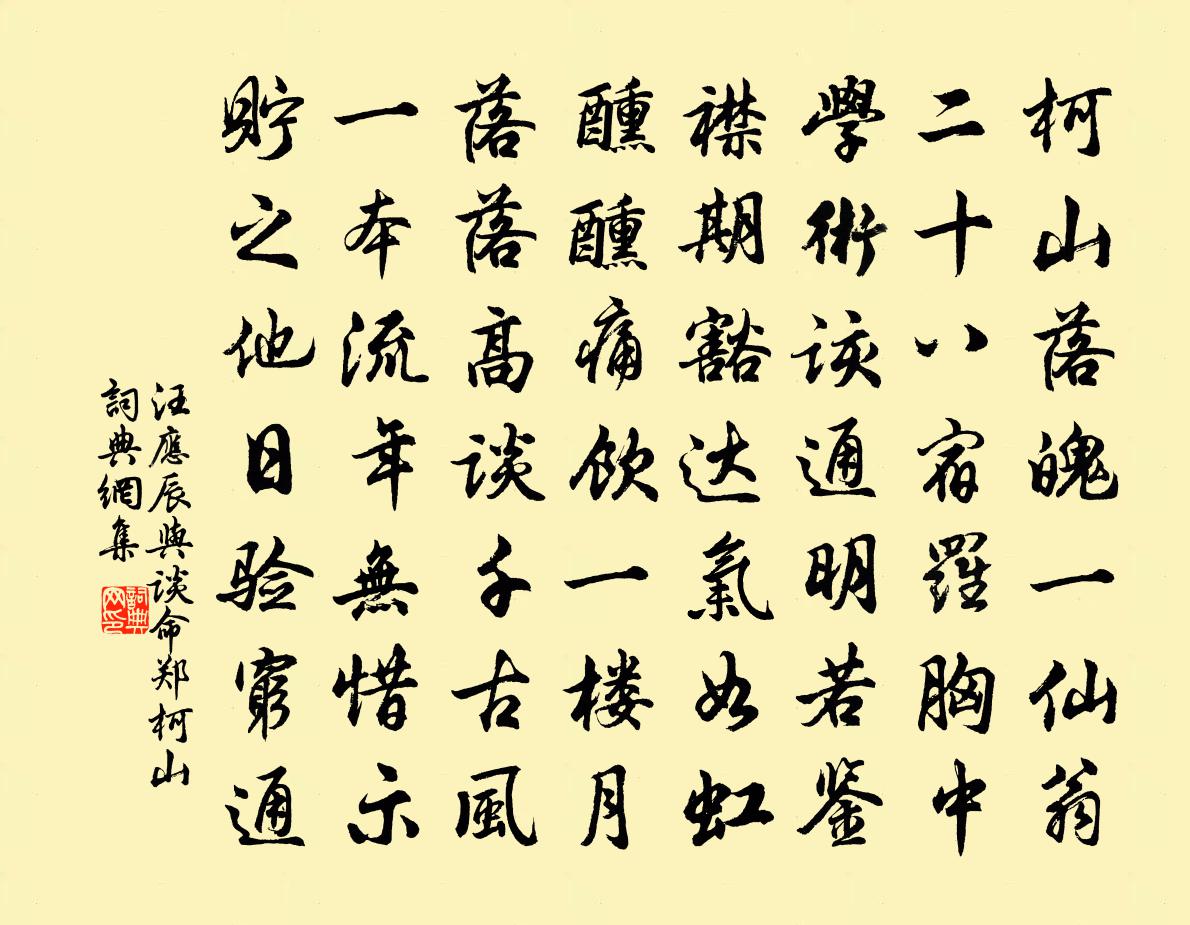 柯山落魄一仙翁
二十八宿羅胸中
學術該通明若鉴
襟期豁达氣如虹
醺醺痛飲一楼月
落落高談千古風
一本流年無惜示
貯之他日验窮通
汪應辰與談命郑柯山
詞典網集
詞典网印